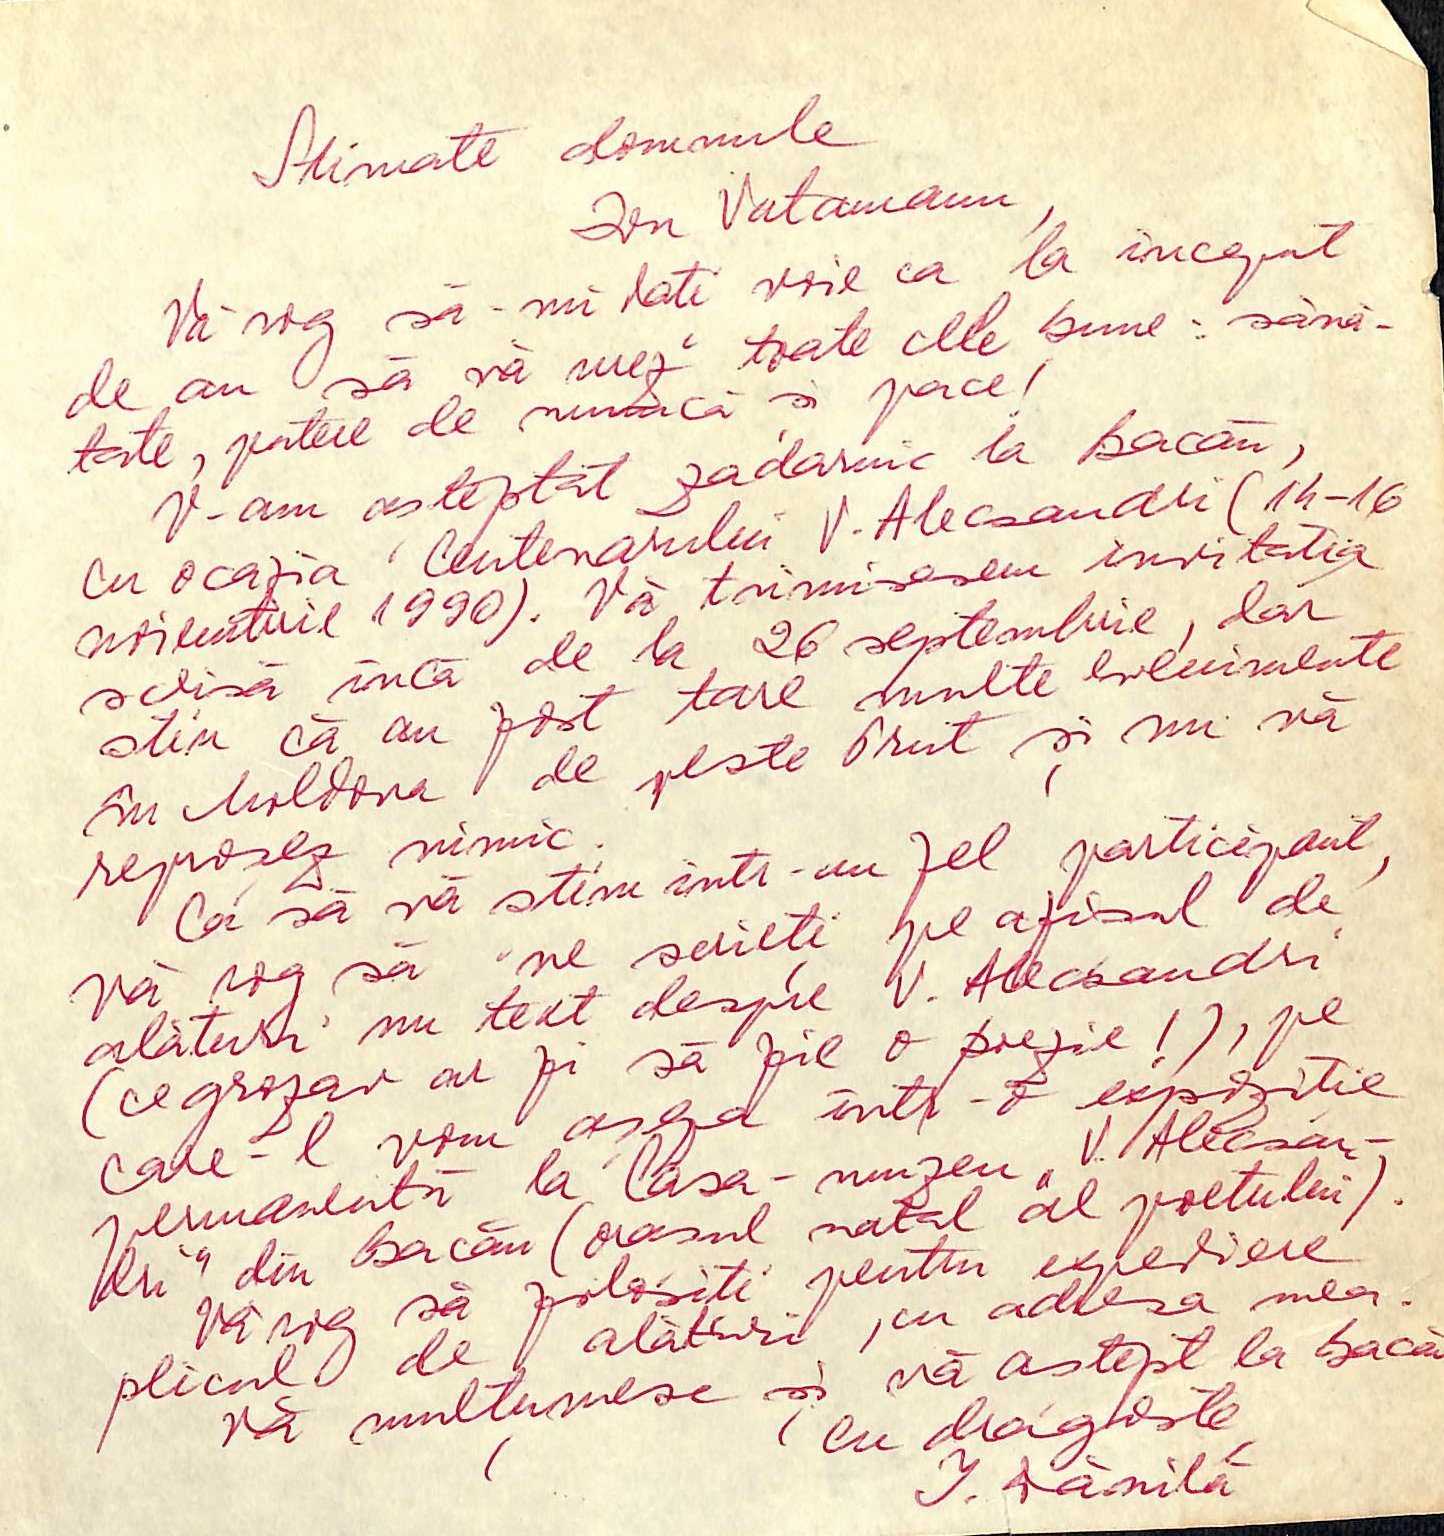 Stimate domnule
Ion Vatamanu,
Vă rog să-mi dați voie ca la început
de an să vă urez toate cele bune: sănă-
tate, putere de muncă și pace!
V-am așteptat zadarnic la Bacău,
cu ocazia Centenarului V. Alecsandri (14-16
noiembrie 1990). Vă trimisesem invitația
scrisă încă de la 26 septembrie, dar
știu că au fost tare multe evenimente
în Moldova de peste Prut și nu vă
reproșez nimic.
Ca să vă știm într-un fel participant,
vă rog să ne scrieți pe afișul de
alături un text despre V. Alecsandri
(ce grozav ar fi să fie o poezie!), pe
care-l vom așeza într-o expoziție
permanentă la Casa-muzeu „V. Alecsan-
dri" din Bacău (orașul natal al poetului).
Vă rog să folosiți pentru expediere
plicul de alături, cu adresa mea.
Vă mulțumesc și vă aștept la Bacău
cu dragoste,
I. Dănilă